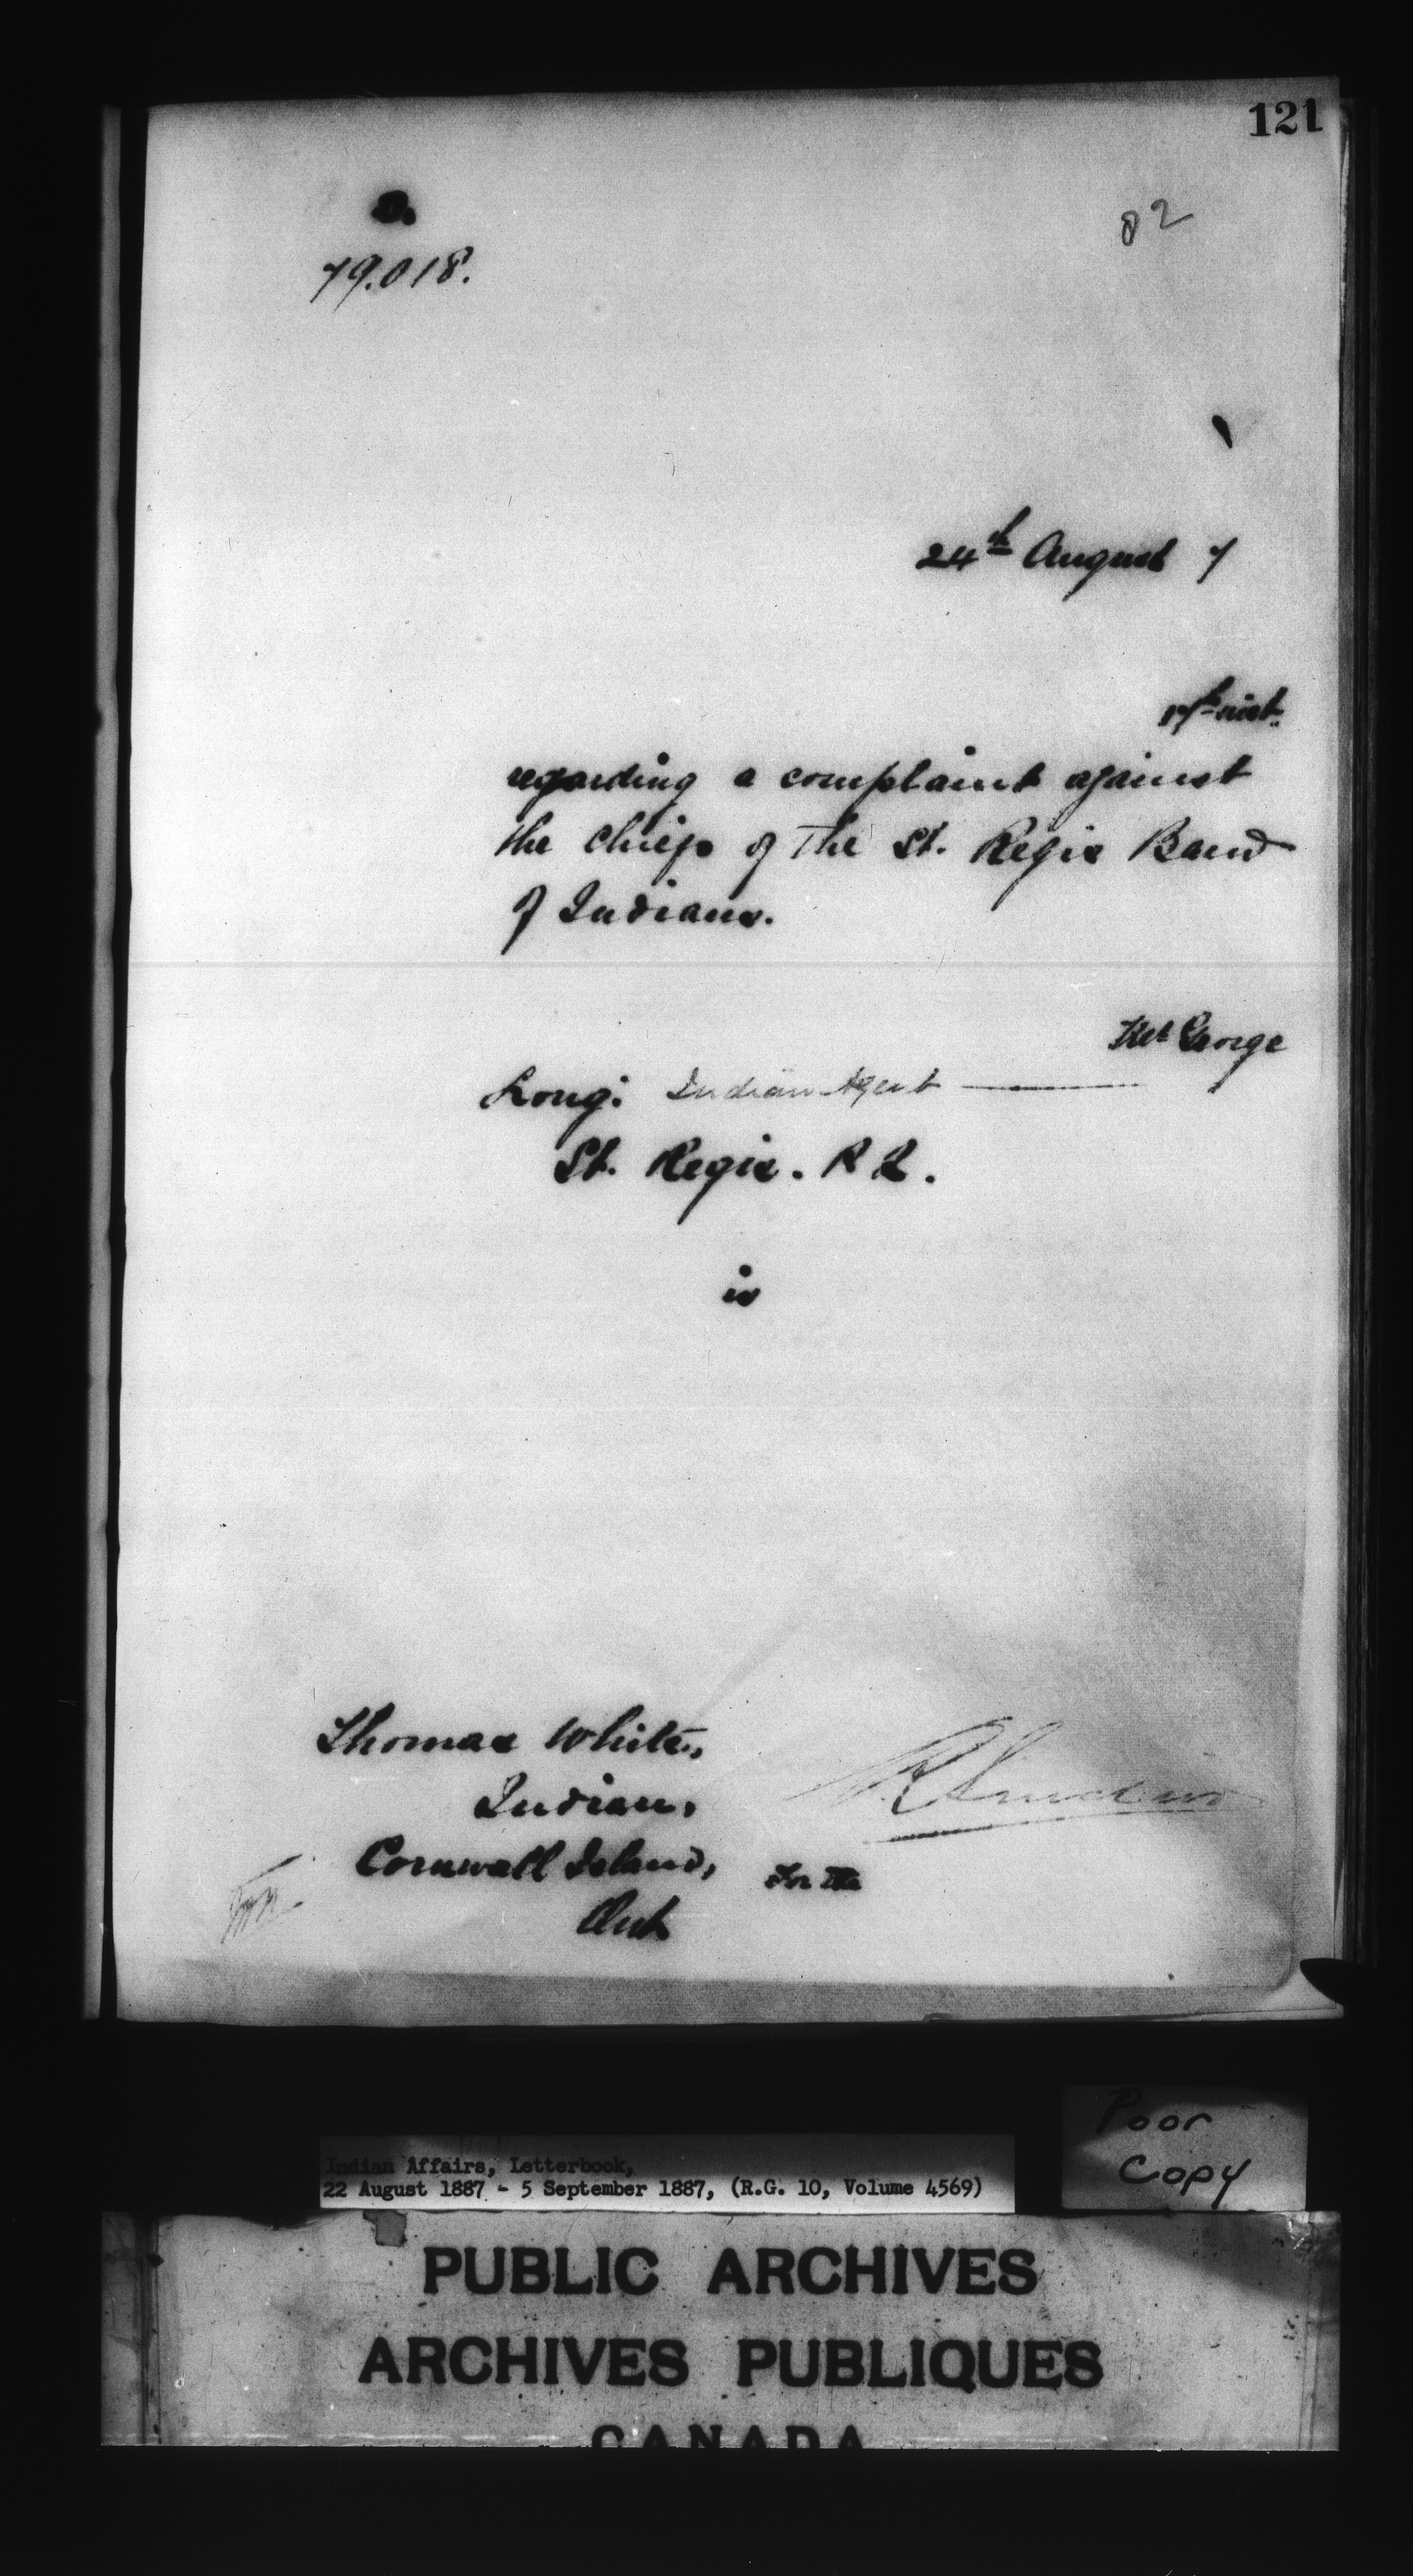 121
82
79.018.
24th August 7
17th inst.
regarding a complaint against
the Chiefs of the St. Regis Band
of Indians.
George
Long: Indian Agent
St. Regis. P Q.
is
Thomas White,
Indian,
Cornwall Island,
Ont
For the
Indian Affairs, Letterbook,
22 August 1887 - 5 September 1887, (R.G. 10, Volume 4569)
Poor
Copy
PUBLIC ARCHIVES
ARCHIVES PUBLIQUES
CANADA